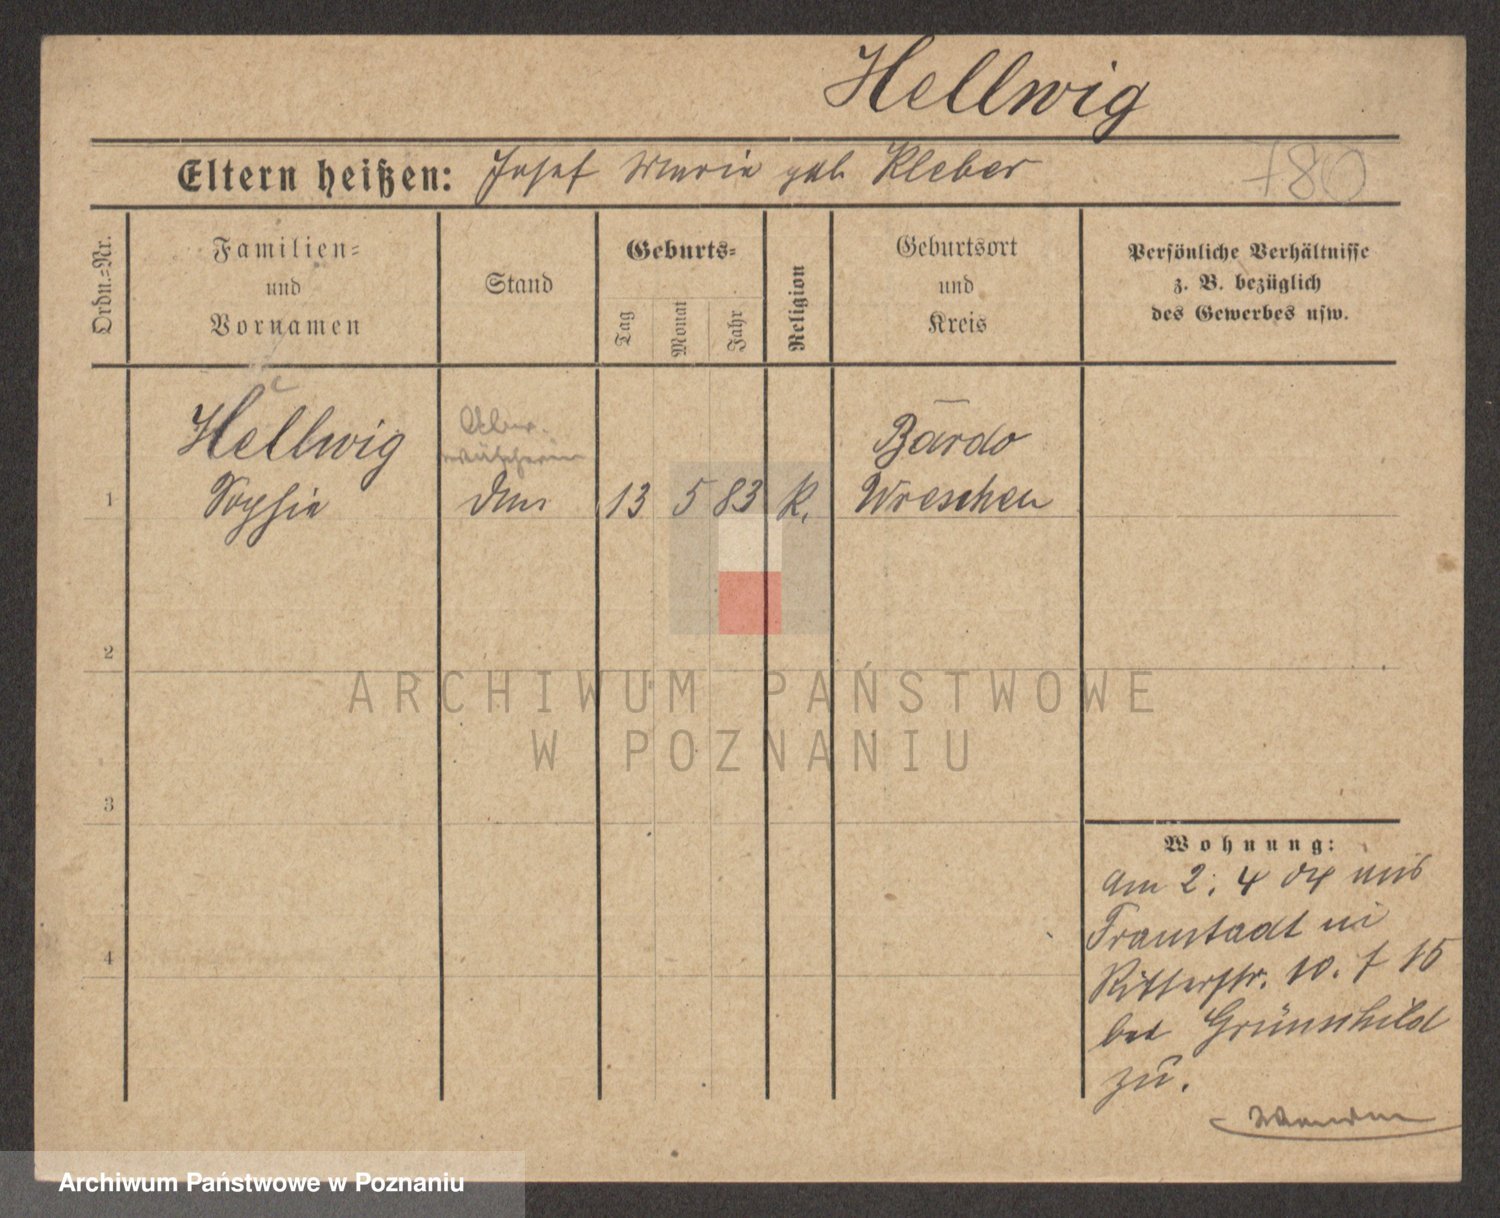 Hellwig
Eltern heißen: Josef Marie geb Kleber
780
Ordn.=Nr.
Familien=
und
Vornamen
Stand
Geburts=
Tag
Monat
Jahr
Religion
Geburtsort
und
Kreis
Persönliche Verhältnisse
z. B. bezüglich
des Gewerbes usw.
1
Hellwig
Sophie
13 5 83 k.
Bardo
Wreschen
2
3
4
ARCHIWUM PAŃSTWOWE
W POZNANIU
Wohnung:
Am 2. 4 04 aus
Fraustadt in
Ritterstr. 10. f 15
bei Grünschild
zu.
Archiwum Państwowe w Poznaniu